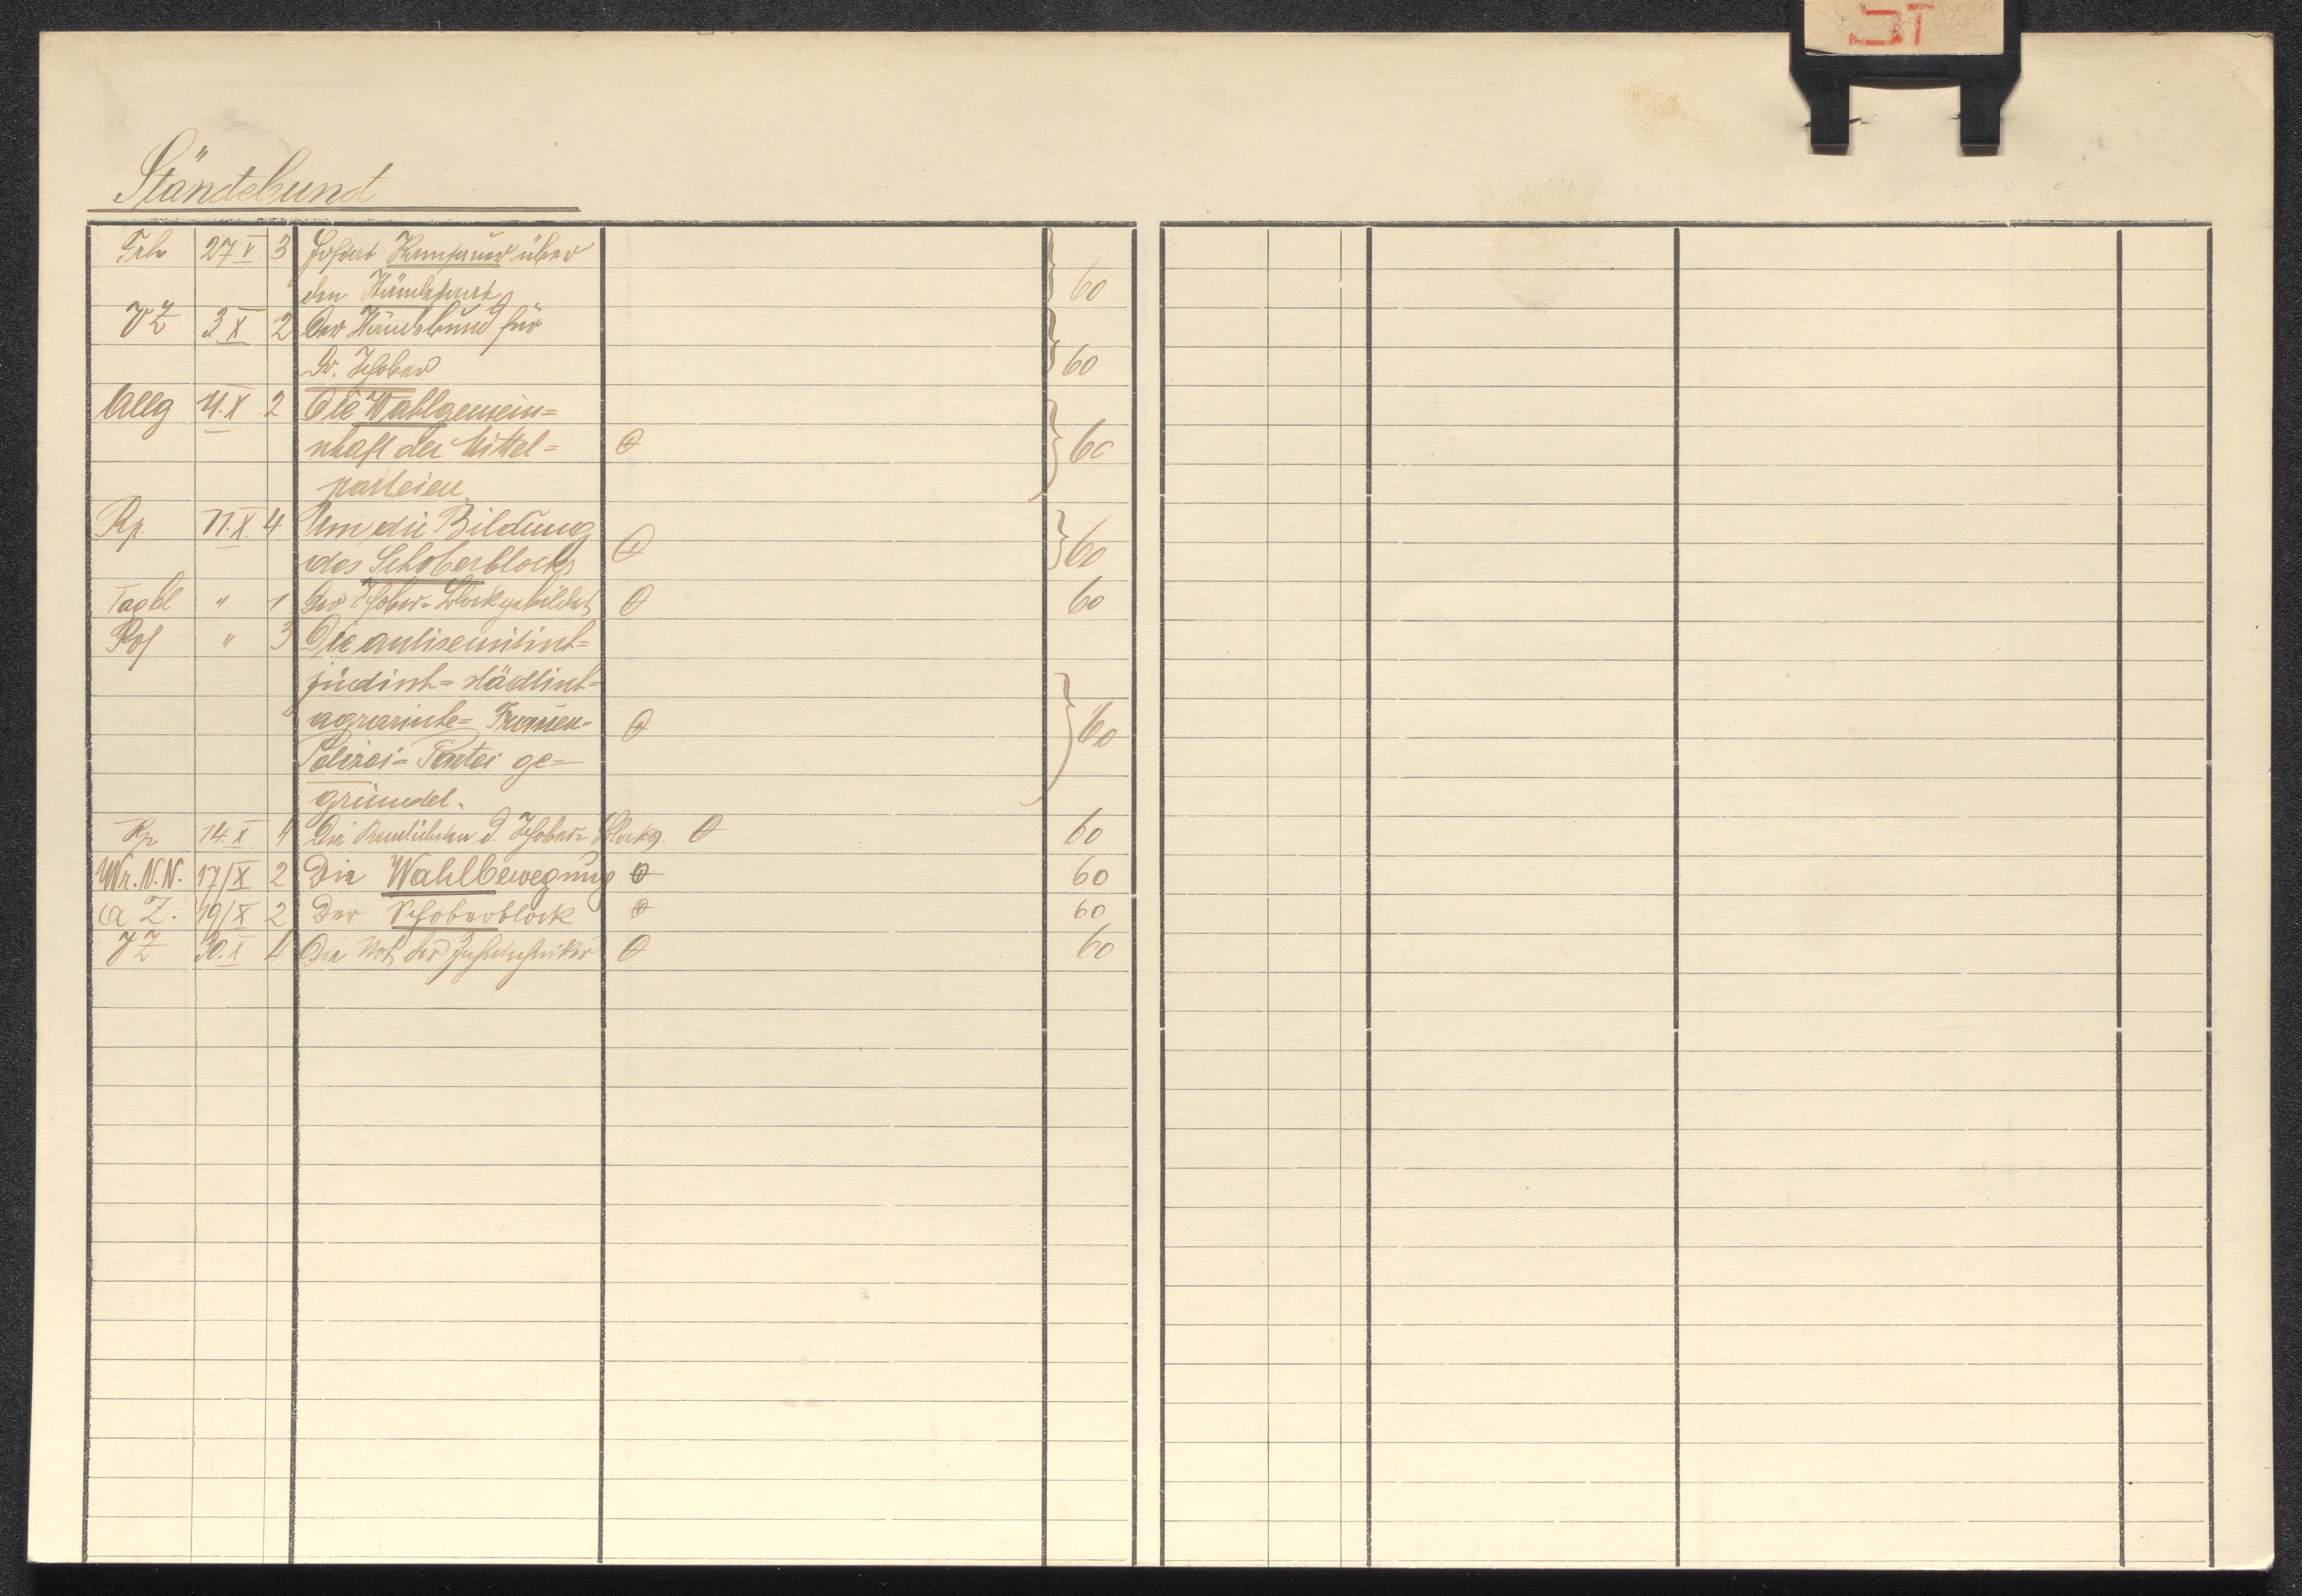 Ständebund
Frh 27.V. 3 Hofrat über 60
den Ständebund
VZ 3.X 2 Der Ständebund für
Dr. Schober 60
Allg 4.X 2 Die Wahlgemein=
schaft der Mittel= 60
parteien
Rp. 11.X. 4 Um die Bildung
des Schoberblocks 60
Tagbl " 1 Der Schober-Block gebildet 60
" 3 Die antisemitisch=
jüdisch= städtisch=
agrarische= Frauen= 60
Polizei= Partei ge=
gründet.
Rp 14.X. 4 Die d. Schober= Blocks. 60
Wr. N. N. 17/X 2 Die Wahlbewegung 60
A Z. 19/X 2 Der Schoberblock 60
VZ 30.X 4 Die Not der 60